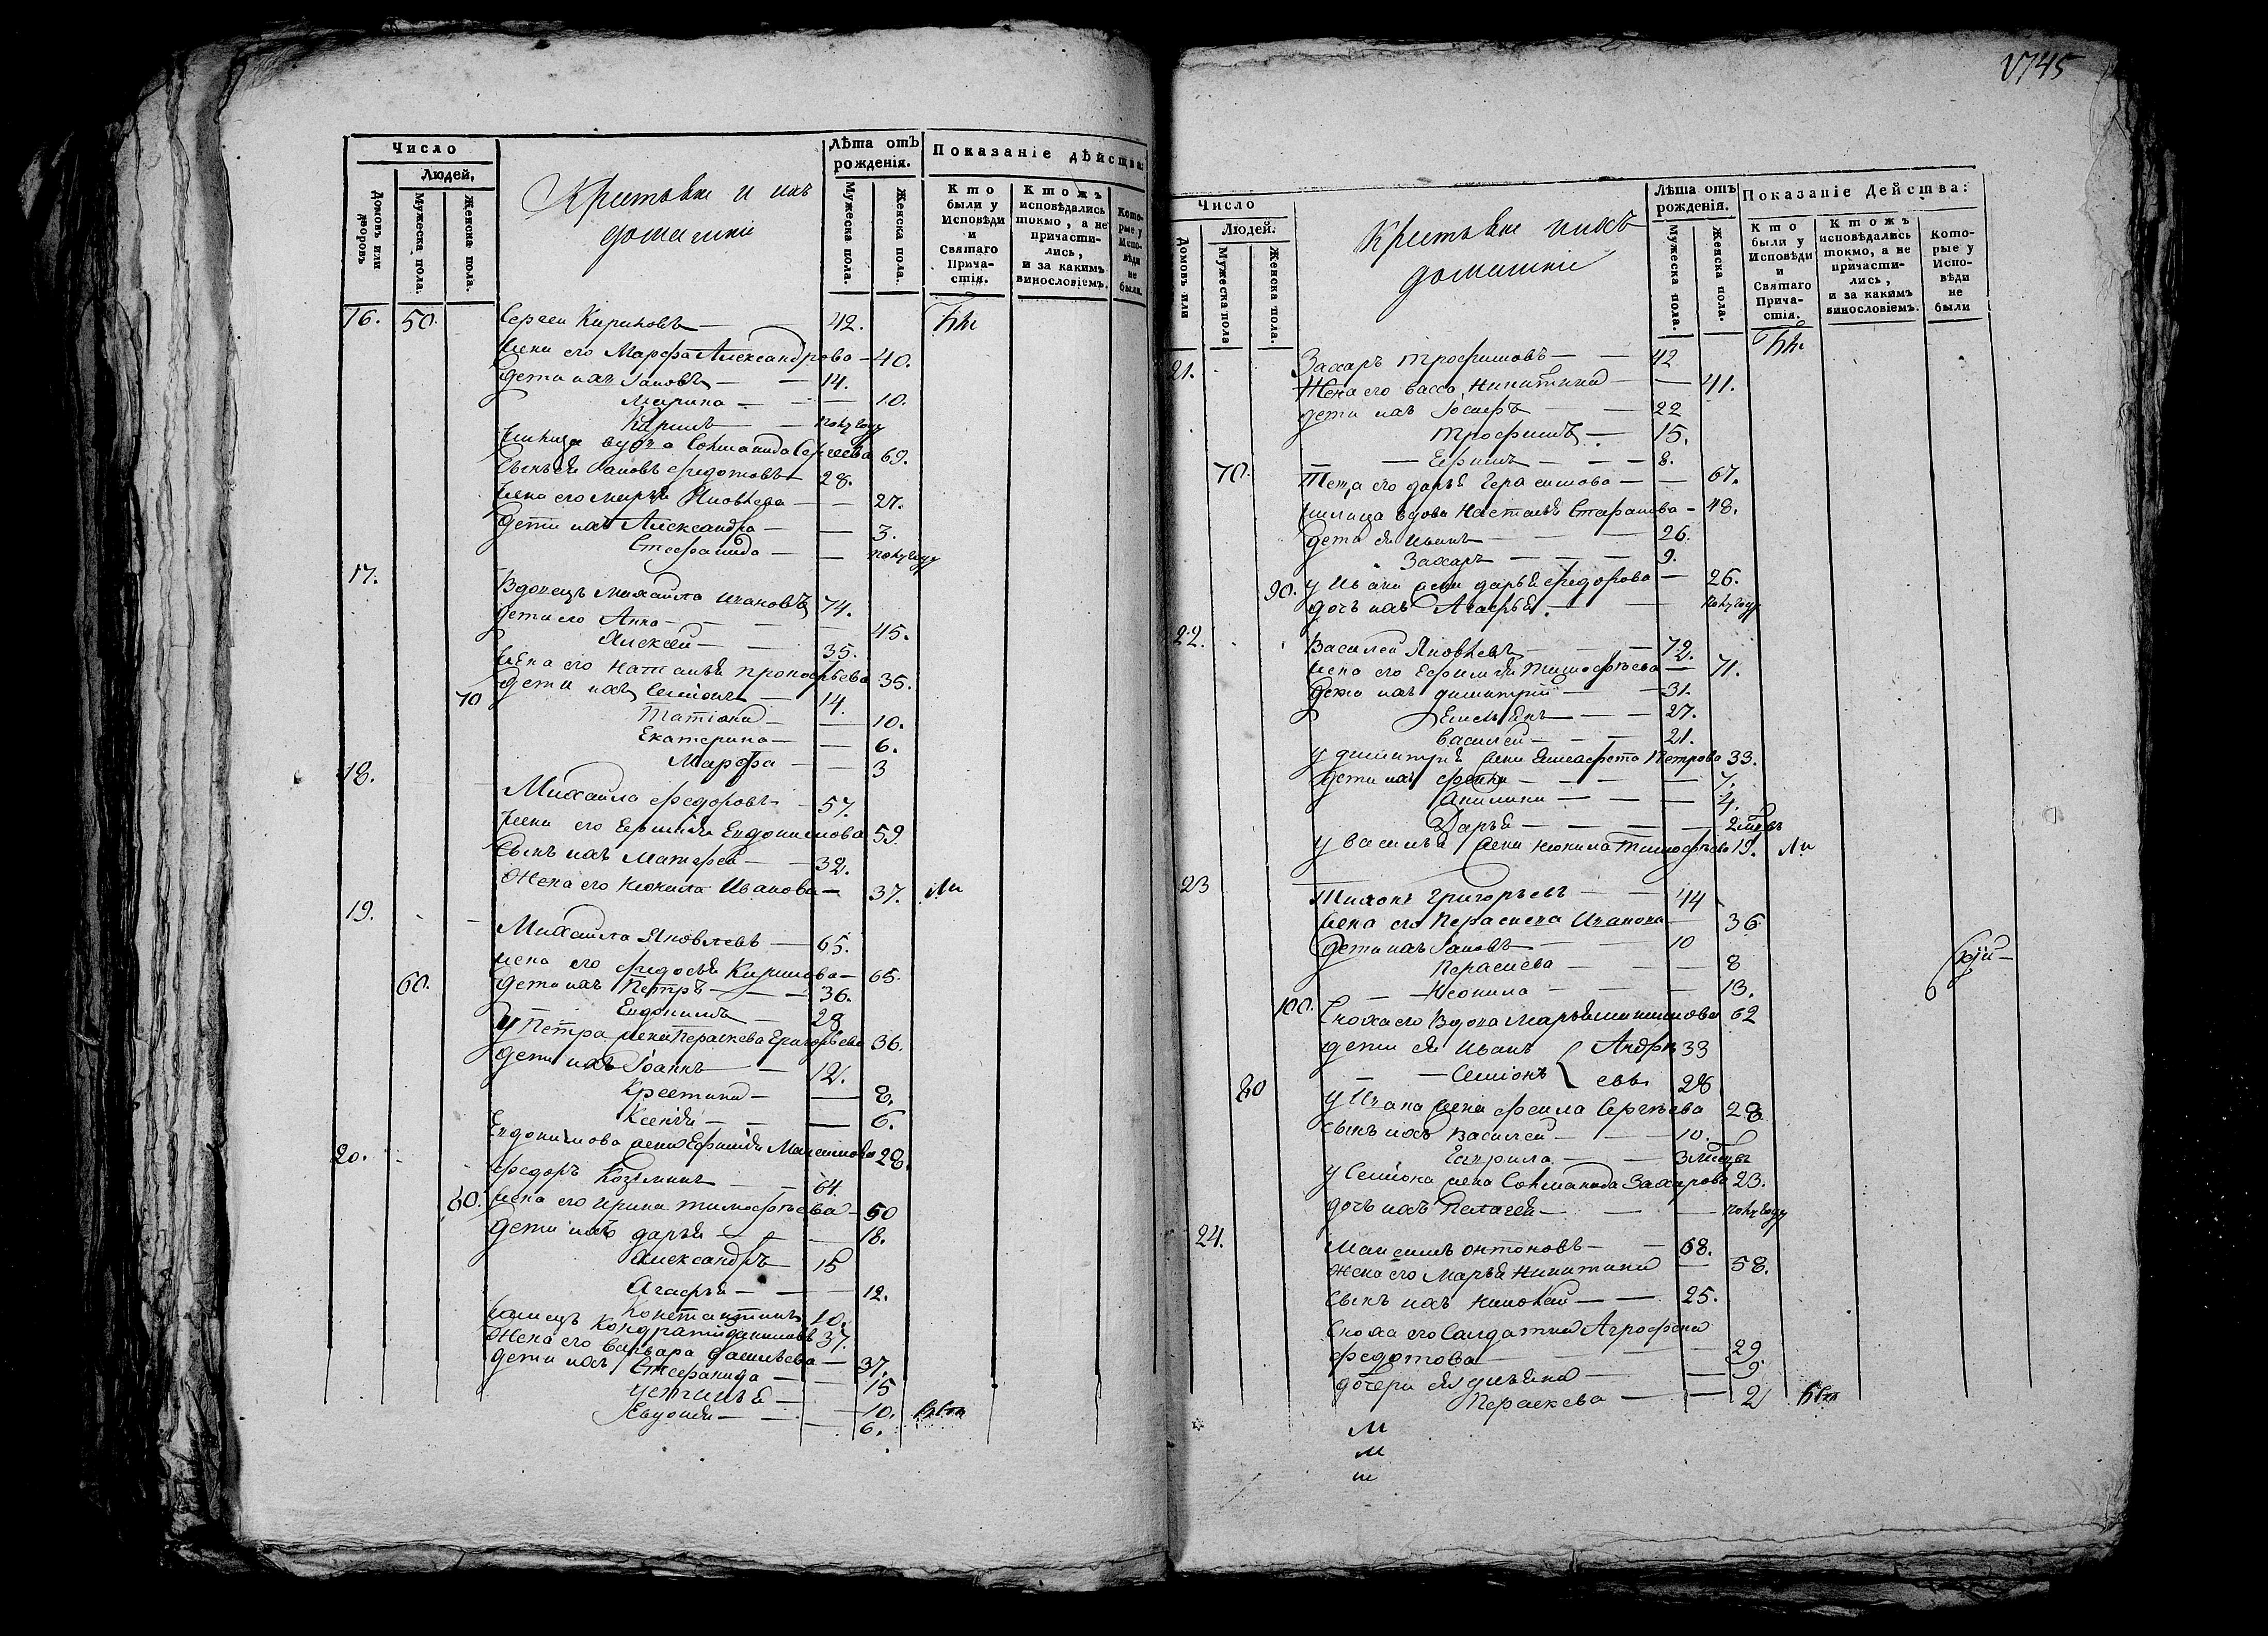 Число
Людей,
Домовъ или дворовъ
Мужеска пола.
Женска пола.
Крестьяне и ихъ
домашніе
Лѣта отъ рожденія.
Мужеска пола.
Женска пола.
Показаніе дѣйства:
Кто были у Исповѣди и Святаго Причастія.
Ктожъ исповѣдались токмо, а не причастились, и за какимъ винословіемъ.
Которые у Исповѣди не были.
16. 50. Сергеи Кириловъ — 42.
жена его Марфа Александрова — 40.
дети ихъ Iаковъ — — 14.
Марина — — 10.
Кирилъ — полугоду
вдова Соломанида Сергеева 69.
Сынъ ея Iаковъ Федотовъ 28.
жена его Марья Яковлева — 27.
дети ихъ Александра — — 3.
Стефанида — — полугоду
17. Вдовецъ Михаила Ивановъ 74.
дети его Анна — — 45.
Алексеи — — 35.
жена его Наталья Прокофьева 35.
70 дети ихъ Семіонъ — 14.
Татіана — — 10.
Екатерина — — 6.
Марфа — — 3
18. Михаила Федоровъ — 57.
жена его Ефимья Евдокимова 59.
Сынъ ихъ Матфеи — 32.
Жена его Неонила Иванова — 37.
19. Михаила Яковлевъ — 65.
жена его Федосья Кирилова — 65.
60. дети ихъ Петръ — — 36.
Евдокимъ — 28
у Петра жена Параскева Григорьева 36.
дети ихъ Iоаннъ — 12.
Крестина — — 8.
Ксенія — — 6.
Евдокимова жена Ефимья Максимова 28.
20. Федоръ Козминъ — — 64.
80. жена его Ирина Тимофѣева — 50
дети ихъ Дарья — — 18.
Александръ 15
Агафья — — 12.
Константинъ 10.
Кондратій 37.
Жена его Варвара Васильева — 37.
дети ихъ Стефанида — 15
Устинья — 10.
Евдокія — — 6.
V745
Число
Людей.
Домовъ или
Мужеска пола
Женска пола.
Крестьяне ихъ
домашніе
Лѣта отъ рожденія.
Мужеска пола.
Женска пола.
Показаніе Действа:
Кто были у Исповѣди и Святаго Причастія.
Ктожъ исповѣдались токмо, а не причастились, и за какимъ винословіемъ.
Которые у Исповѣди не были
21. Захаръ Трофимовъ — — 42
Жена его Васса Никитина — — 41.
дети ихъ Iосифъ — — 22
Трофимъ — 15.
— Ефимъ — — — 8.
70. Теща его Дарья Герасимова — — 67.
вдова Настасья Стафанова — 48.
дети ея Иванъ — — — 26.
Захаръ — — — 9.
90. у Ивана жена Дарья Федорова — 26.
дочь ихъ Агафья — — полугоду
22. Василеи Яковлевъ — — 72.
жена его Ефимья Тимофѣева — 71.
дети ихъ Димитрій — — 31.
Емельянъ — — 27.
Василеи — — — 21.
у Димитрія жена Елисафета Петрова 33.
дети ихъ — — — 7.
Акилина — — — 4.
Дарья — — — — 2
у Василья жена Неонила Тимофѣева 19.
23 Тихонъ Григорьевъ — — 44
жена его Параскева Иванова — 36
дети ихъ Iаковъ — — 10
Параскева — — — 8
— Неонила — — — 13.
100. Сноха его вдова Марья 62
дети ея Иванъ { Андре 33
80 — Семіонъ { евы 28
у Ивана жена Фекла Сергѣева 28
Сынъ ихъ Василеи — — 10.
Гаврила — — 3
у Семіона жена Соломанида Захарова 23.
дочь ихъ Пелагея — — полугоду
24. Максимъ Онтоновъ — — 68.
Жена его Марья Никитина — 58.
Сынъ ихъ Николаи — — 25.
Сноха его Салдатка Агрофена
Федотова — — — 29.
дочери ея Ульяна — — 9
Параскева — — 2
М
М
ш